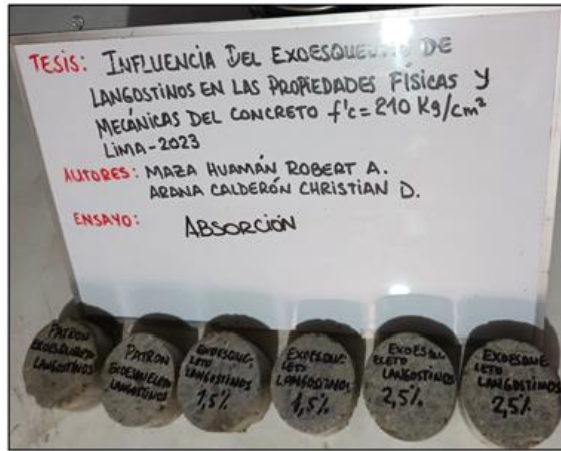 TESIS: INFLUENCIA DEL EXOESQUELETO DE
LANGOSTINOS EN LAS PROPIEDADES FÍSICAS Y
MECÁNICAS DEL CONCRETO f'c=210 Kg/cm²
LIMA-2023
AUTORES: MAZA HUAMÁN ROBERT A.
ARANA CALDERÓN CHRISTIAN D.
ENSAYO: ABSORCIÓN
PATRON
EXOESQUELETO
LANGOSTINOS
PATRON
EXOESQUELETO
LANGOSTINOS
EXOESQUE
LETO
LANGOSTINOS
1,5%
EXOESQUE
LETO
LANGOSTINOS
1,5%
EXOESQU
ELETO
LANGOSTINOS
2,5%
EXOESQUE
LETO
LANGOSTINOS
2,5%